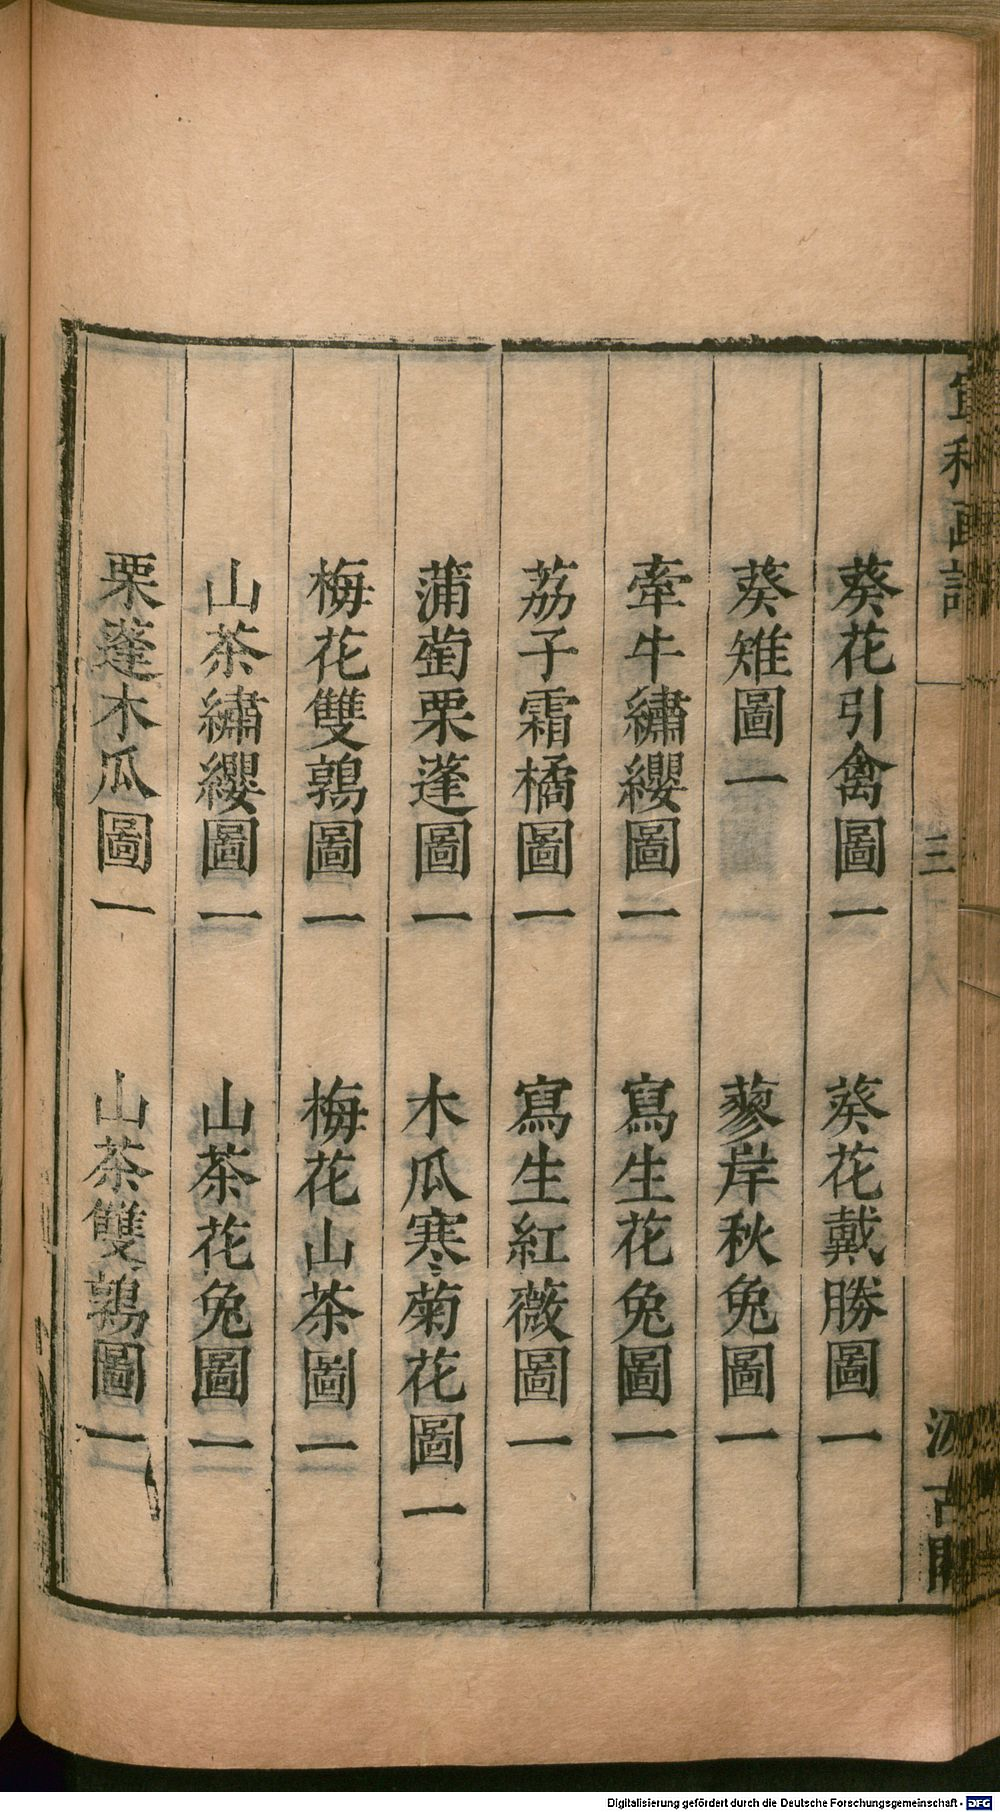 宣和画譜 三 汲古閣
葵花引禽圖一 葵花戴勝圖一
葵雉圖一 蓼岸秋兔圖一
牽牛繡纓圖一 寫生花兔圖一
荔子霜橘圖一 寫生紅薇圖一
蒲萄栗蓬圖一 木瓜寒菊花圖一
梅花雙鶉圖一 梅花山茶圖一
山茶繡纓圖一 山茶花兔圖一
栗蓬木瓜圖一 山茶雙鶉圖一
Digitalisierung gefördert durch die Deutsche Forschungsgemeinschaft - DFG